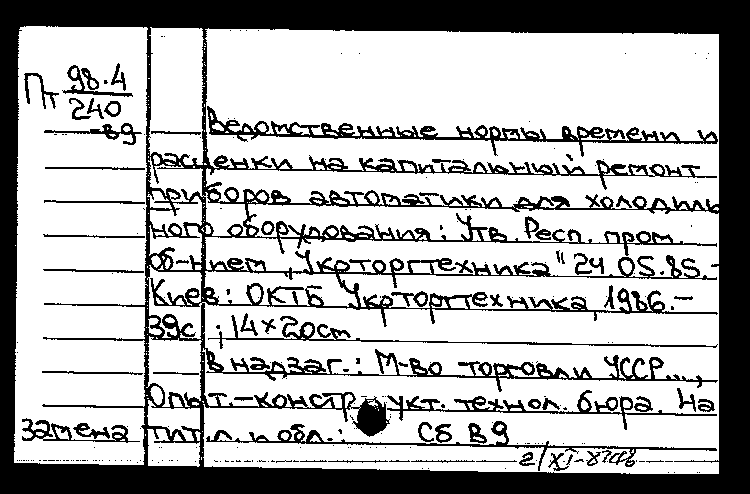 Пт 98.4
240
-В9
Ведомственные нормы времени и
расценки на капитальный ремонт
приборов автоматики для холодиль
ного оборудования: Утв. Респ. пром.
об-нием „Укрторгтехника" 24.05.85.-
Киев: ОКТБ Укрторгтехника, 1986.-
39с.; 14×20см.
В надзаг.: М-во торговли УССР...,
Опыт.-конструкт. технол. бюро. На
замена тит.л. и обл.: Сб. В9